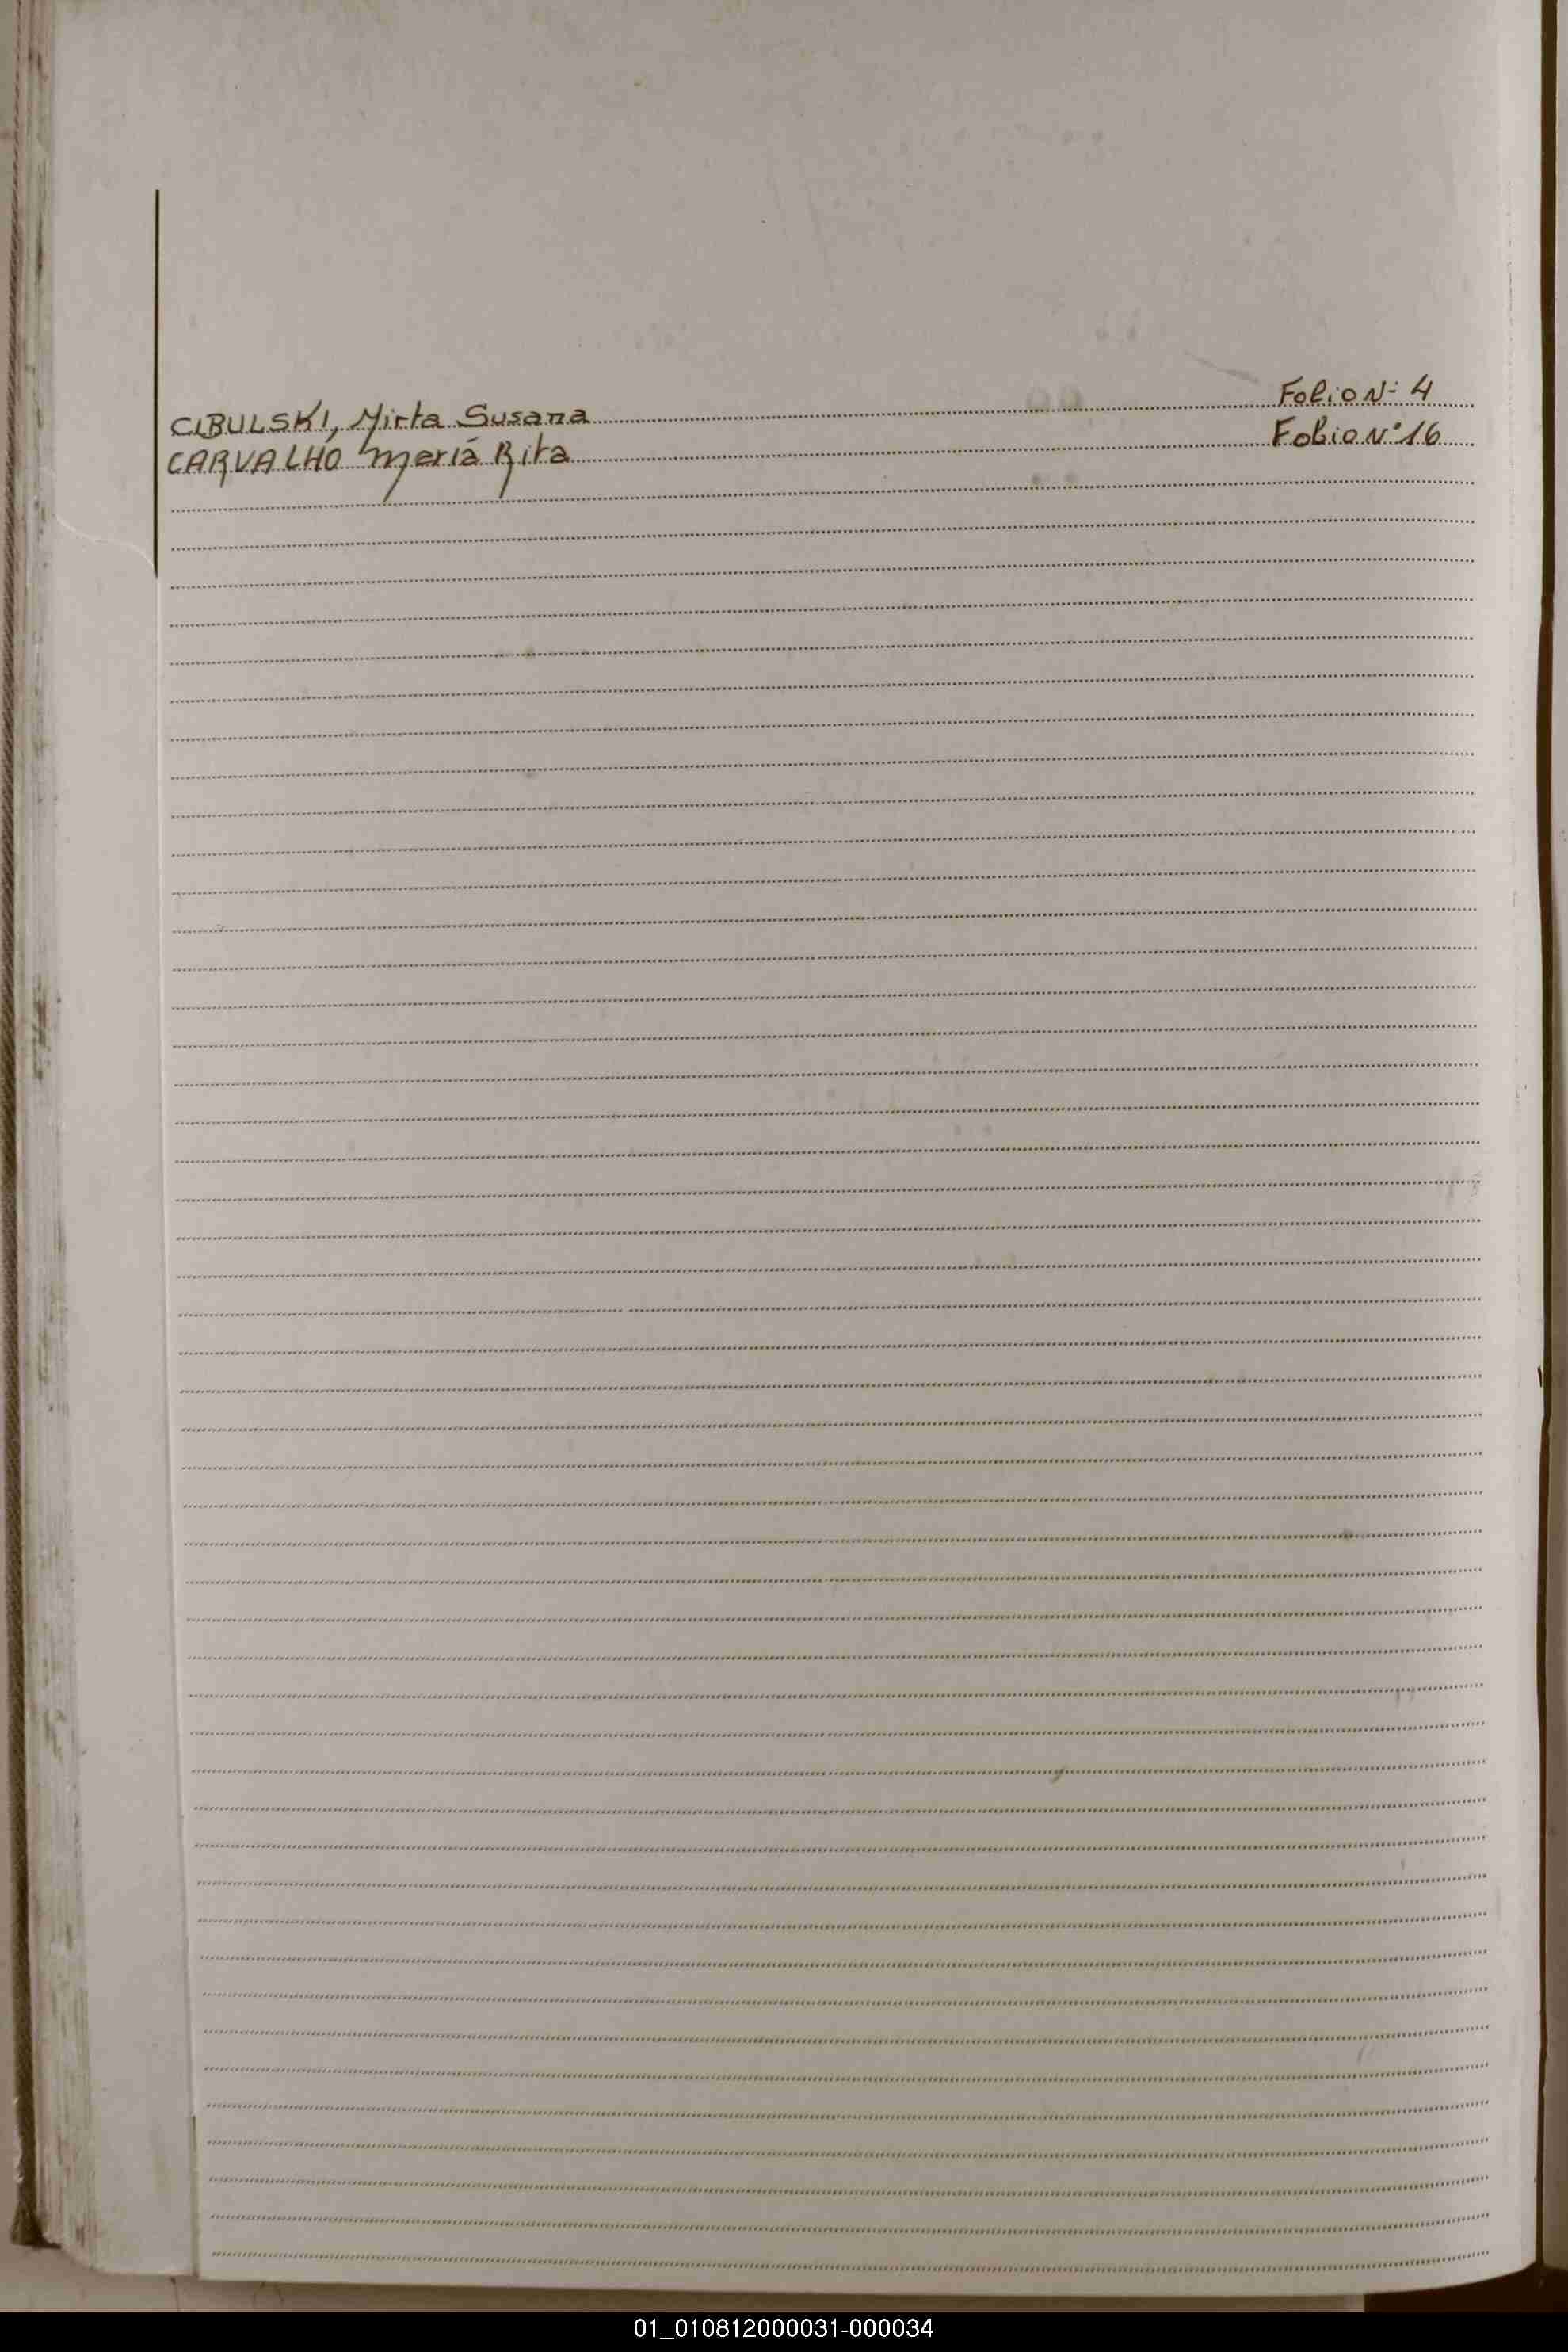 CIBULSKI, Mirta Susana Folio Nº 4
CARVALHO Meriá Rita Folio Nº 16
01_010812000031-000034